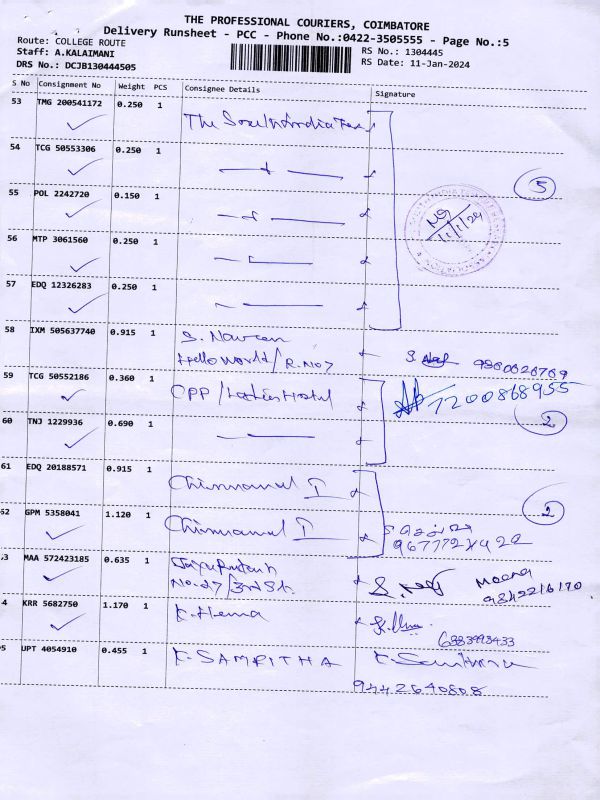 THE PROFESSIONAL COURIERS, COIMBATORE
Delivery Runsheet - PCC - Phone No.:0422-3505555 - Page No.:5
Route: COLLEGE ROUTE
Staff: A.KALAIMANI
DRS No.: DCJB130444505
RS No.: 1304445
RS Date: 11-Jan-2024
S No Consignment No Weight PCS Consignee Details Signature
53 TMG 200541172 0.250 1
54 TCG 50553306 0.250 1
5
55 POL 2242720 0.150 1
11/1/24
56 MTP 3061560 0.250 1
57 EDQ 12326283 0.250 1
58 IXM 505637740 0.915 1 S. Naveen
Hello world/R.No7
59 TCG 50552186 0.360 1 OPP/Ladies Hostel 7200868955
60 TNJ 1229936 0.690 1
2
61 EDQ 20188571 0.915 1 Chinnamal I
2
62 GPM 5358041 1.120 1 Chinnamal I
MAA 572423185 0.635 1
No.27/3rd St. Meena
9842216170
KRR 5682750 1.170 1 K. Hema
6383993433
UPT 4054910 0.455 1 K. SAMRITHA
9442640808